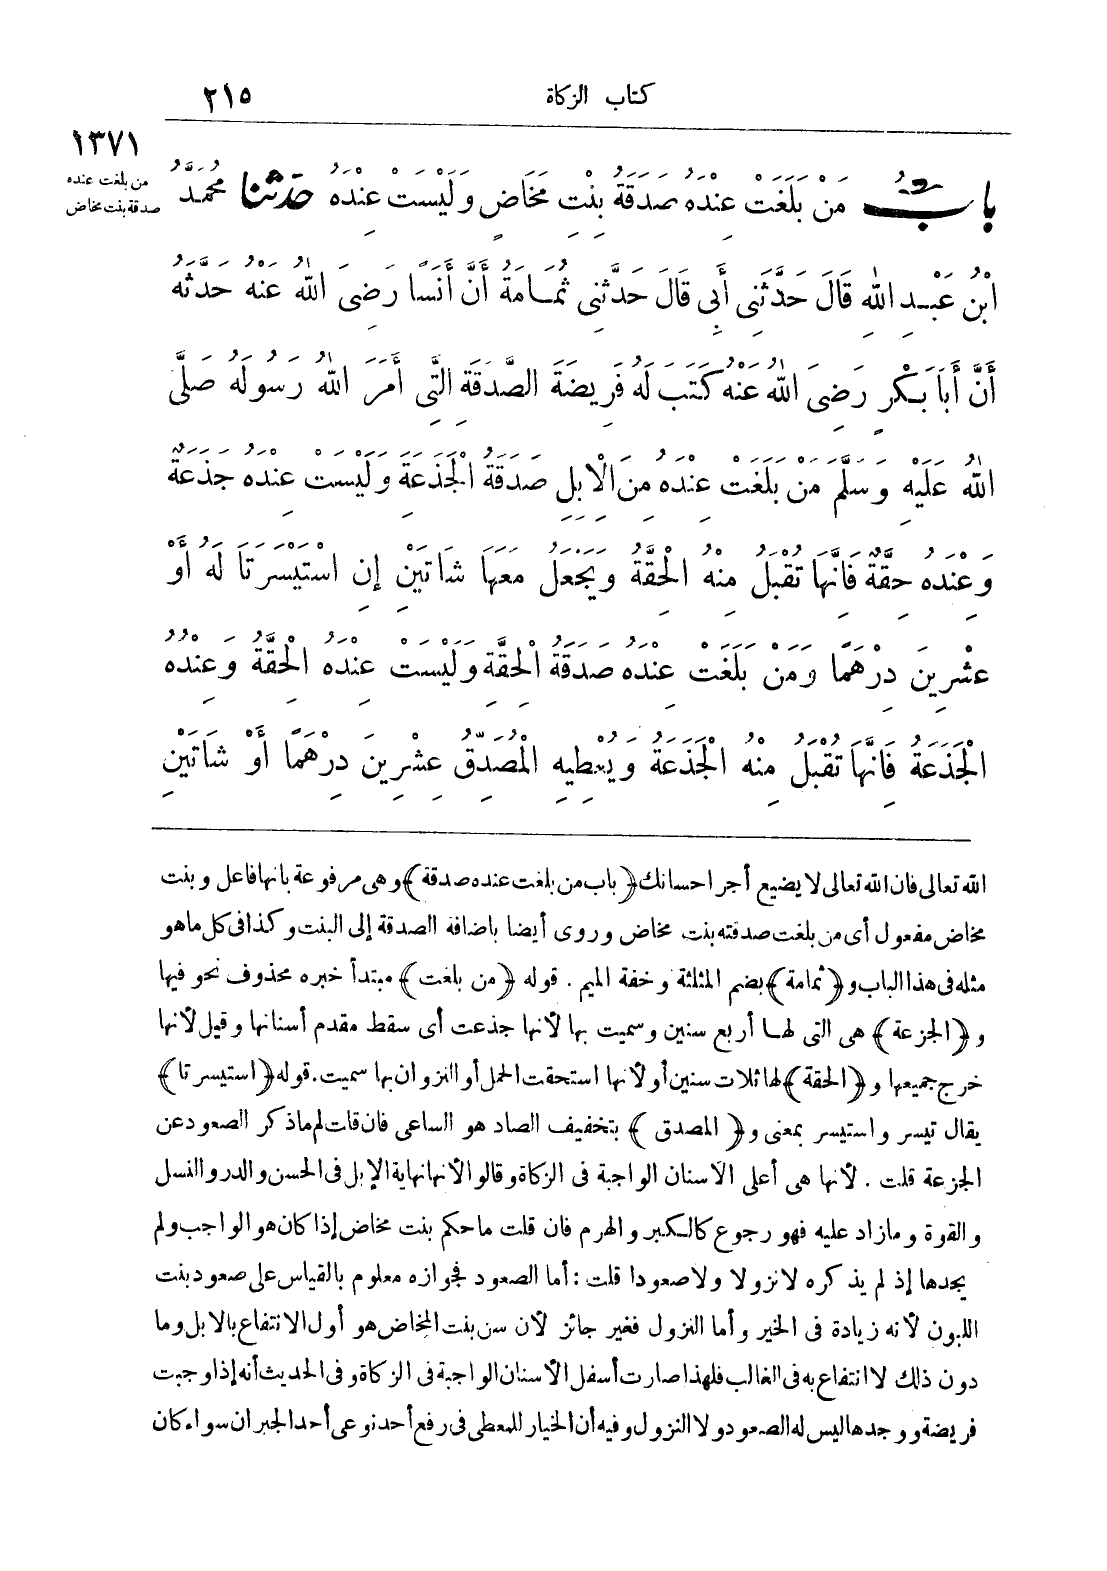 كتاب الزكاة ٢١٥
١٣٧١
من بلغت عنده
صدقة بنت مخاض
بابُ مَنْ بَلَغَتْ عِنْدَهُ صَدَقَةُ بِنْتِ مَخَاضٍ وَلَيْسَتْ عِنْدَهُ حدثنا مُحَمَّدُ
ابْنُ عَبْدِ اللهِ قَالَ حَدَّثَنِي أَبِي قَالَ حَدَّثَنِي ثُمَامَةُ أَنَّ أَنَسًا رَضِيَ اللهُ عَنْهُ حَدَّثَهُ
أَنَّ أَبَا بَكْرٍ رَضِيَ اللهُ عَنْهُ كَتَبَ لَهُ فَرِيضَةَ الصَّدَقَةِ الَّتِي أَمَرَ اللهُ رَسُولَهُ صَلَّى
اللهُ عَلَيْهِ وَسَلَّمَ مَنْ بَلَغَتْ عِنْدَهُ مِنَ الْإِبِلِ صَدَقَةُ الْجَذَعَةِ وَلَيْسَتْ عِنْدَهُ جَذَعَةٌ
وَعِنْدَهُ حِقَّةٌ فَإِنَّهَا تُقْبَلُ مِنْهُ الْحِقَّةُ وَيَجْعَلُ مَعَهَا شَاتَيْنِ إِنِ اسْتَيْسَرَتَا لَهُ أَوْ
عِشْرِينَ دِرْهَمًا وَمَنْ بَلَغَتْ عِنْدَهُ صَدَقَةُ الْحِقَّةِ وَلَيْسَتْ عِنْدَهُ الْحِقَّةُ وَعِنْدَهُ
الْجَذَعَةُ فَإِنَّهَا تُقْبَلُ مِنْهُ الْجَذَعَةُ وَيُعْطِيهِ الْمُصَدِّقُ عِشْرِينَ دِرْهَمًا أَوْ شَاتَيْنِ
الله تعالى فان الله تعالى لا يضيع أجر احسانك ﴿باب من بلغت عنده صدقة﴾ وهى مرفوعة بانها فاعل وبنت
مخاض مفعول أى من بلغت صدقته بنت مخاض وروى أيضا باضافة الصدقة إلى البنت وكذا فى كل ما هو
مثله فى هذا الباب و﴿ثمامة﴾ بضم المثلثة وخفة الميم . قوله ﴿من بلغت﴾ مبتدأ خبره محذوف نحو فيها
و﴿الجزعة﴾ هى التى لها أربع سنين وسميت بها لأنها جذعت أى سقط مقدم أسنانها وقيل لأنها
خرج جميعها و﴿الحقة﴾ لها ثلاث سنين أو لأنها استحقت الحمل أو النزوان بها سميت. قوله ﴿استيسرتا﴾
يقال تيسر واستيسر بمعنى و﴿المصدق﴾ بتخفيف الصاد هو الساعى فان قلت لم ما ذكر الصعود عن
الجزعة قلت . لأنها هى أعلى الاسنان الواجبة فى الزكاة وقالوا لأنها نهاية الإبل فى الحسن والدر والنسل
والقوة وما زاد عليه فهو رجوع كالكبر والهرم فان قلت ما حكم بنت مخاض إذا كان هو الواجب ولم
يجدها إذ لم يذكره لا نزولا ولا صعودا قلت : أما الصعود فجوازه معلوم بالقياس على صعود بنت
اللبون لأنه زيادة فى الخير وأما النزول فغير جائز لأن سن بنت المخاض هو أول الانتفاع بالابل وما
دون ذلك لا انتفاع به فى الغالب فلهذا صارت أسفل الأسنان الواجبة فى الزكاة وفى الحديث أنه إذا وجبت
فريضة ووجدها ليس له الصعود ولا النزول وفيه أن الخيار للمعطى فى رفع أحد نوعى أحد الجبران سواء كان